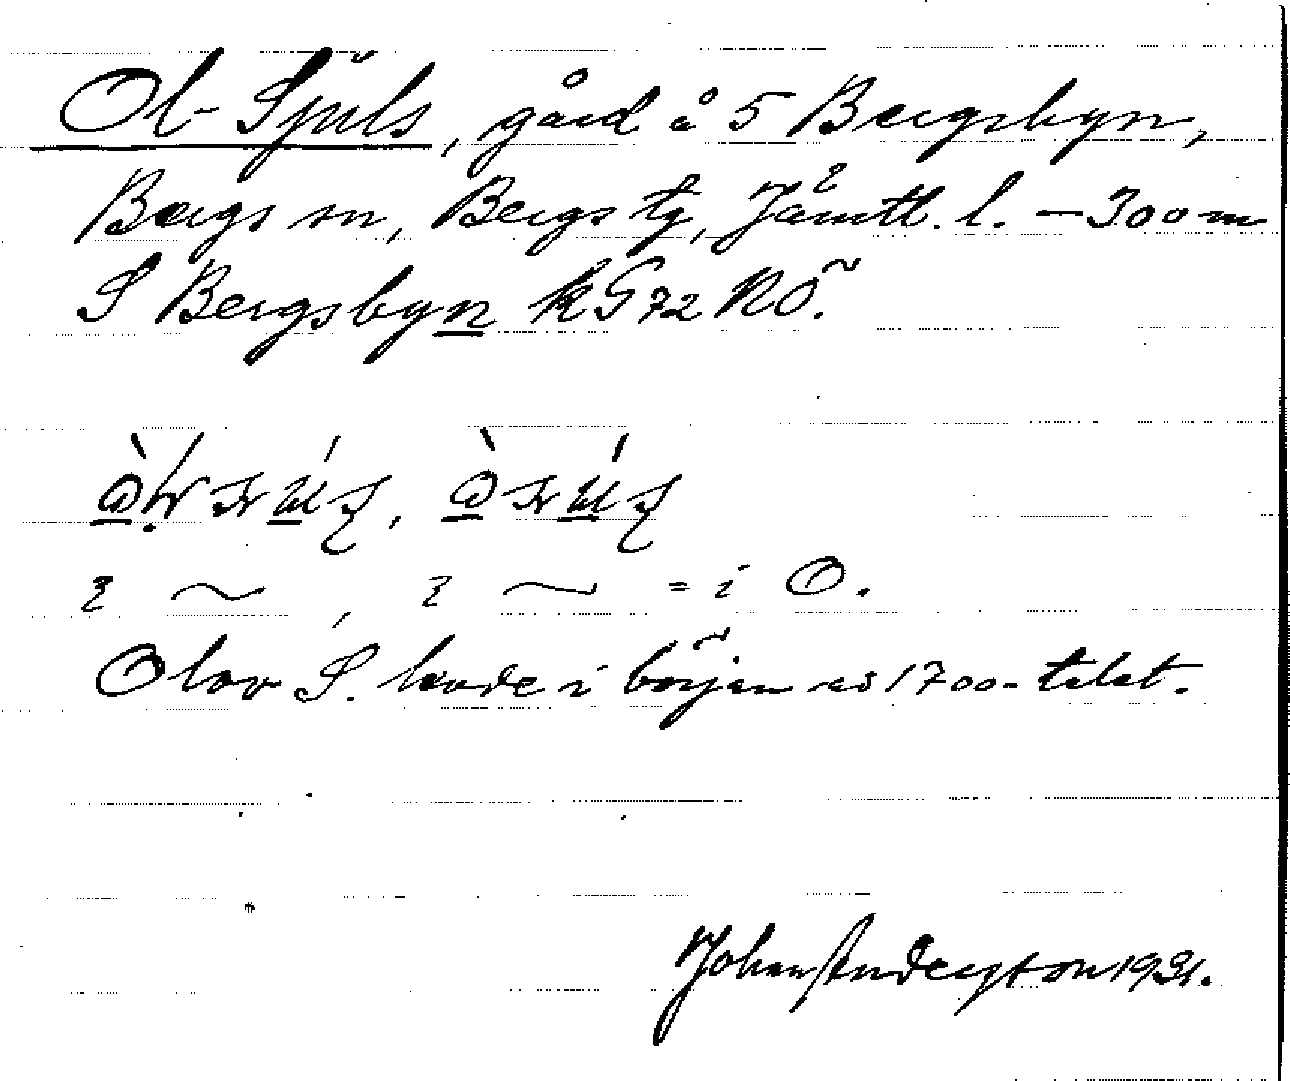 Ol-Sjuls, gård å 5 Bergsbyn,
Bergs sn, Bergs tg, Jämtl. l. – 300 m
S Bergsbyn kG72 NÖ.
= i O.
Olov S. levde i början av 1700-talet.
Johan Anderston 1931.